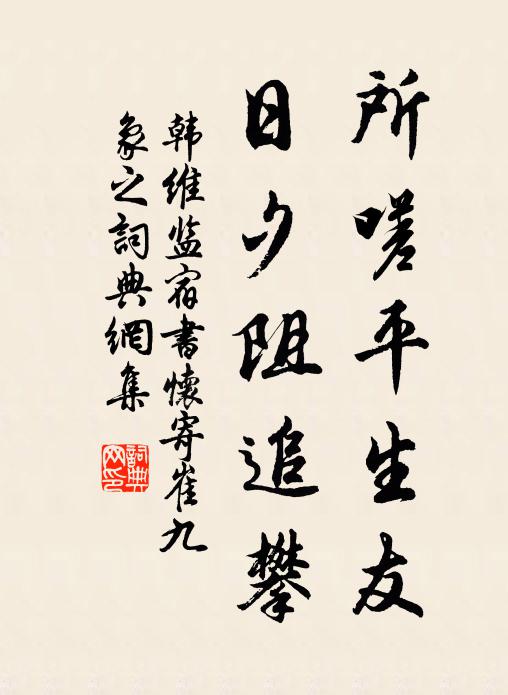 所嗟平生友
日夕阻追攀
韩维监宿書懷寄崔九
象之詞典網集
詞典網印